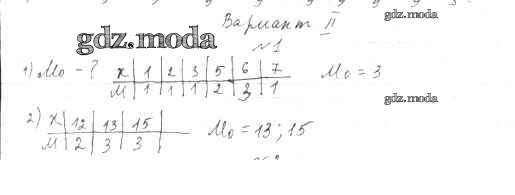 Вариант II
gdz.moda
gdz.moda
№1
1) Mo - ? x 1 2 3 5 6 7 Mo = 3
M 1 1 1 2 3 1
gdz.moda
2) x 12 13 15 Mo = 13; 15
M 2 3 3